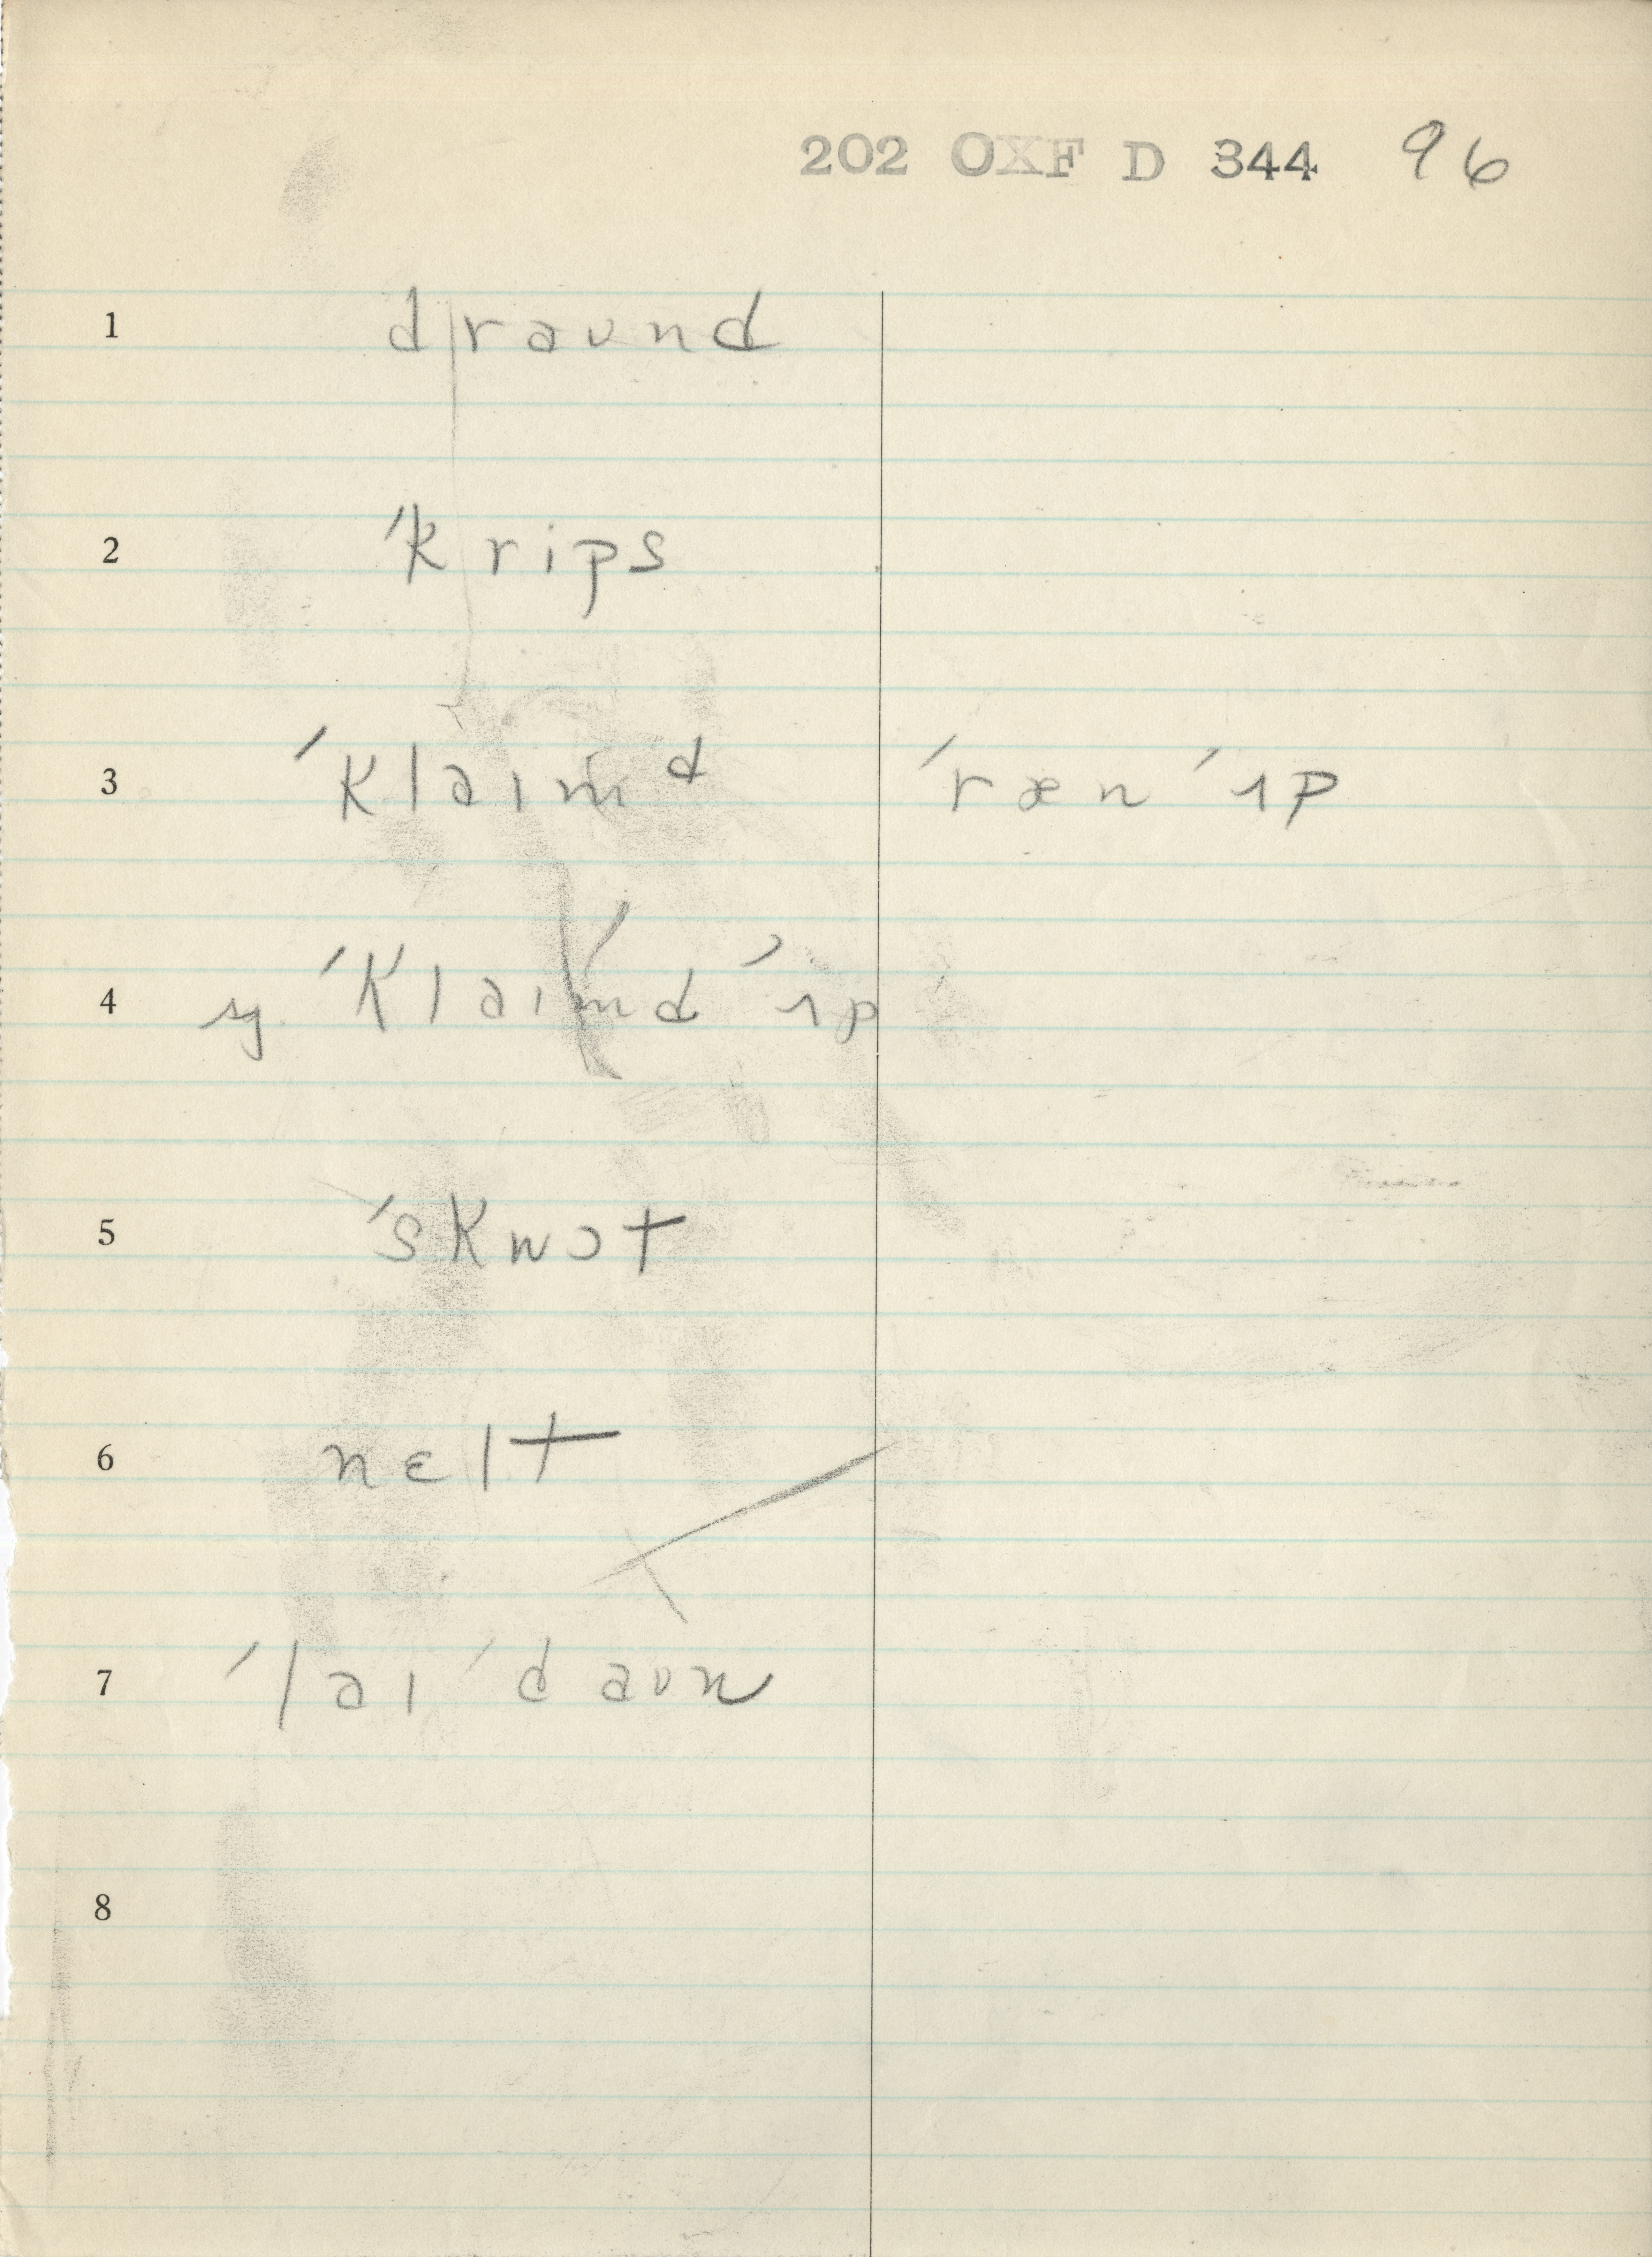 202 OXF D 344 96
1 draʊnd
2 ˈkrips
3 ˈklaɪmd ˈræn ˈɪp
4 ˈklaɪmd ˈɪp
5 ˈskwɔt
6 nɛlt
7 ˈlaɪ ˈdaʊn
8